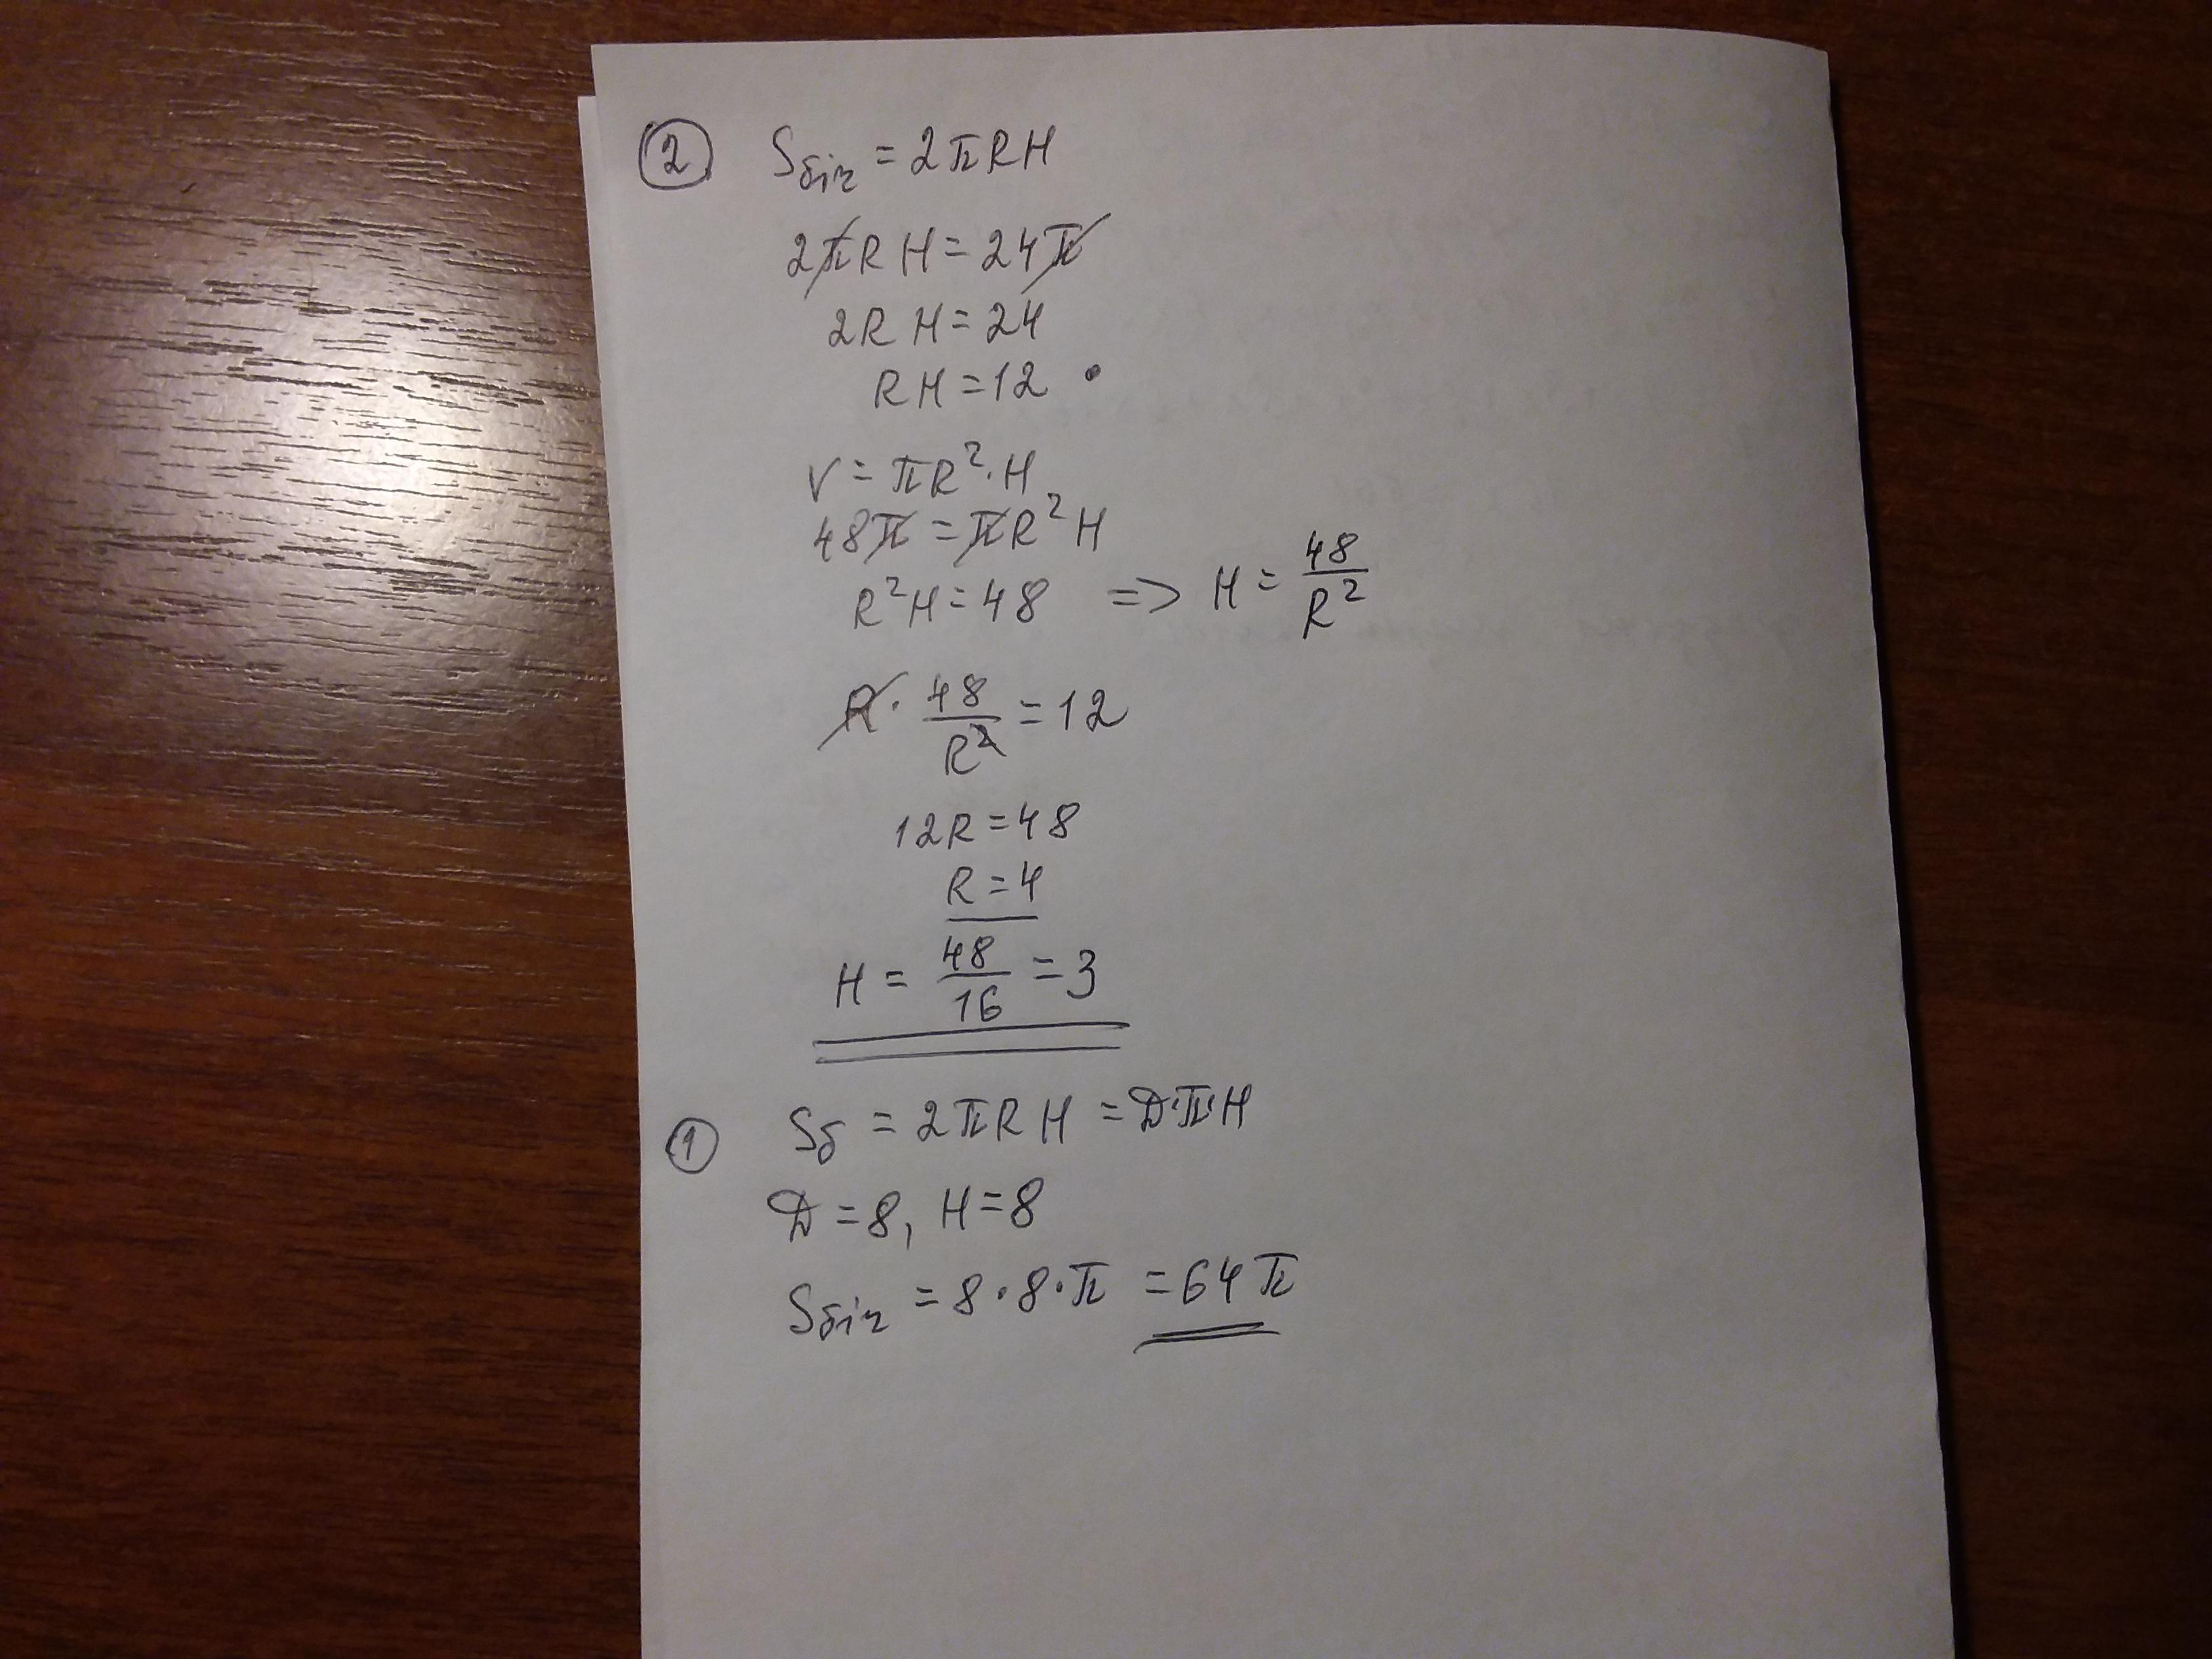 ② Sбіч = 2πRH
2πRH = 24π
2RH = 24
RH = 12 •
V = πR²·H
48π = πR²H
R²H = 48 => H = 48/R²
R · 48/R² = 12
12R = 48
R = 4
H = 48/16 = 3
① Sб = 2πRH = D·π·H
D = 8, H = 8
Sбіч = 8·8·π = 64π